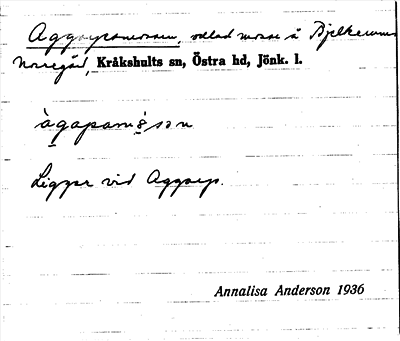 Aggarpamossen, odlad mosse å Bjelkerums
Norregård, Kråkshults sn, Östra hd, Jönk. l.
àgapamòsən
Ligger vid Aggarp.
Annalisa Anderson 1936